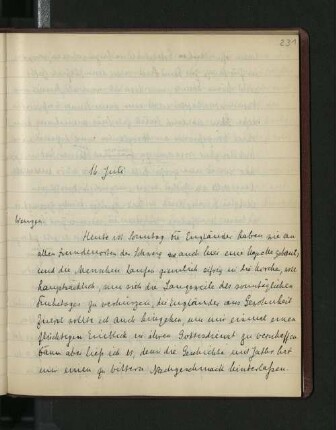 231
16. Juli
Wengen.
Heute ist Sonntag. Die Engländer haben wie an
allen Fremdenorten der Schweiz so auch hier eine Kapelle gebaut,
und die Menschen laufen ziemlich eifrig in die Kirche, wohl
hauptsächlich, um sich die Langeweile des sonntäglichen
Ruhetages zu verkürzen, die Engländer aus Gewohnheit.
Zuerst wollte ich auch hingehen, um mir einmal einen
flüchtigen Einblick in ihren Gottesdienst zu verschaffen
dann aber ließ ich es, denn die Geschichte mit hat
mir einen zu bittern Nachgeschmack hinterlassen.